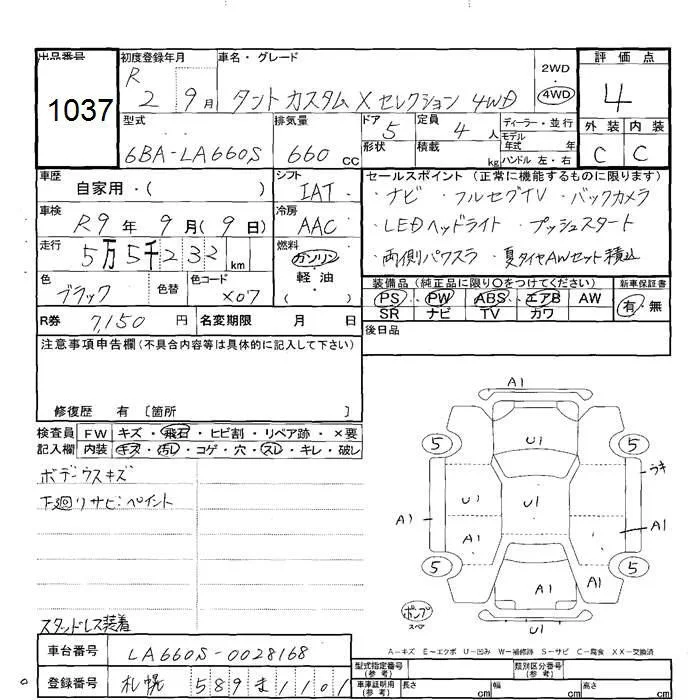 出品番号 1037
初度登録年月 R 2 9月
車名・グレード タント カスタム X セレクション 4WD
2WD 4WD
評価点 4
外装 内装
C C
型式 6BA-LA660S
排気量 660 cc
ドア 5
形状
定員 4 人
積載 kg
ディーラー・並行
モデル年式 年式
ハンドル 左・右
車歴 自家用・( )
シフト IAT
車検 R9年 9月(9日)
冷房 AAC
走行 5万5千232 km
燃料 ガソリン・軽油・( )
色 ブラック 色替
色コード X07
R券 7,150 円
名変期限 月 日
セールスポイント (正常に機能するものに限ります)
・ナビ ・フルセグTV ・バックカメラ
・LEDヘッドライト ・プッシュスタート
・両側パワスラ ・夏タイヤAWセット積込
装備品 (純正品に限り○をつけてください)
PS PW ABS エアB AW
SR ナビ TV カワ
新車保証書
有・無
後日品
注意事項申告欄 (不具合内容等は具体的に記入して下さい)
修復歴 有 〔箇所 〕
検査員記入欄
FW キズ・飛石・ヒビ割・リペア跡・×要
内装 キズ・汚レ・コゲ・穴・スレ・キレ・破レ
ボデーウスキズ
下廻リサビ:ペイント
スタッドレス装着
A1
5 U1 5
ウキ
U1 U1
A1 A1 A1
5 A1 A1 5
ポンプ
スペア
U1
A-キズ E-エクボ U-凹み W-補修跡 S-サビ C-腐食 XX-交換済
車台番号 LA660S-0028168
登録番号 札幌 589 ま 1101
型式指定番号(参考)
類別区分番号(参考)
車庫証明用(参考) 長さ cm 幅 cm 高さ cm